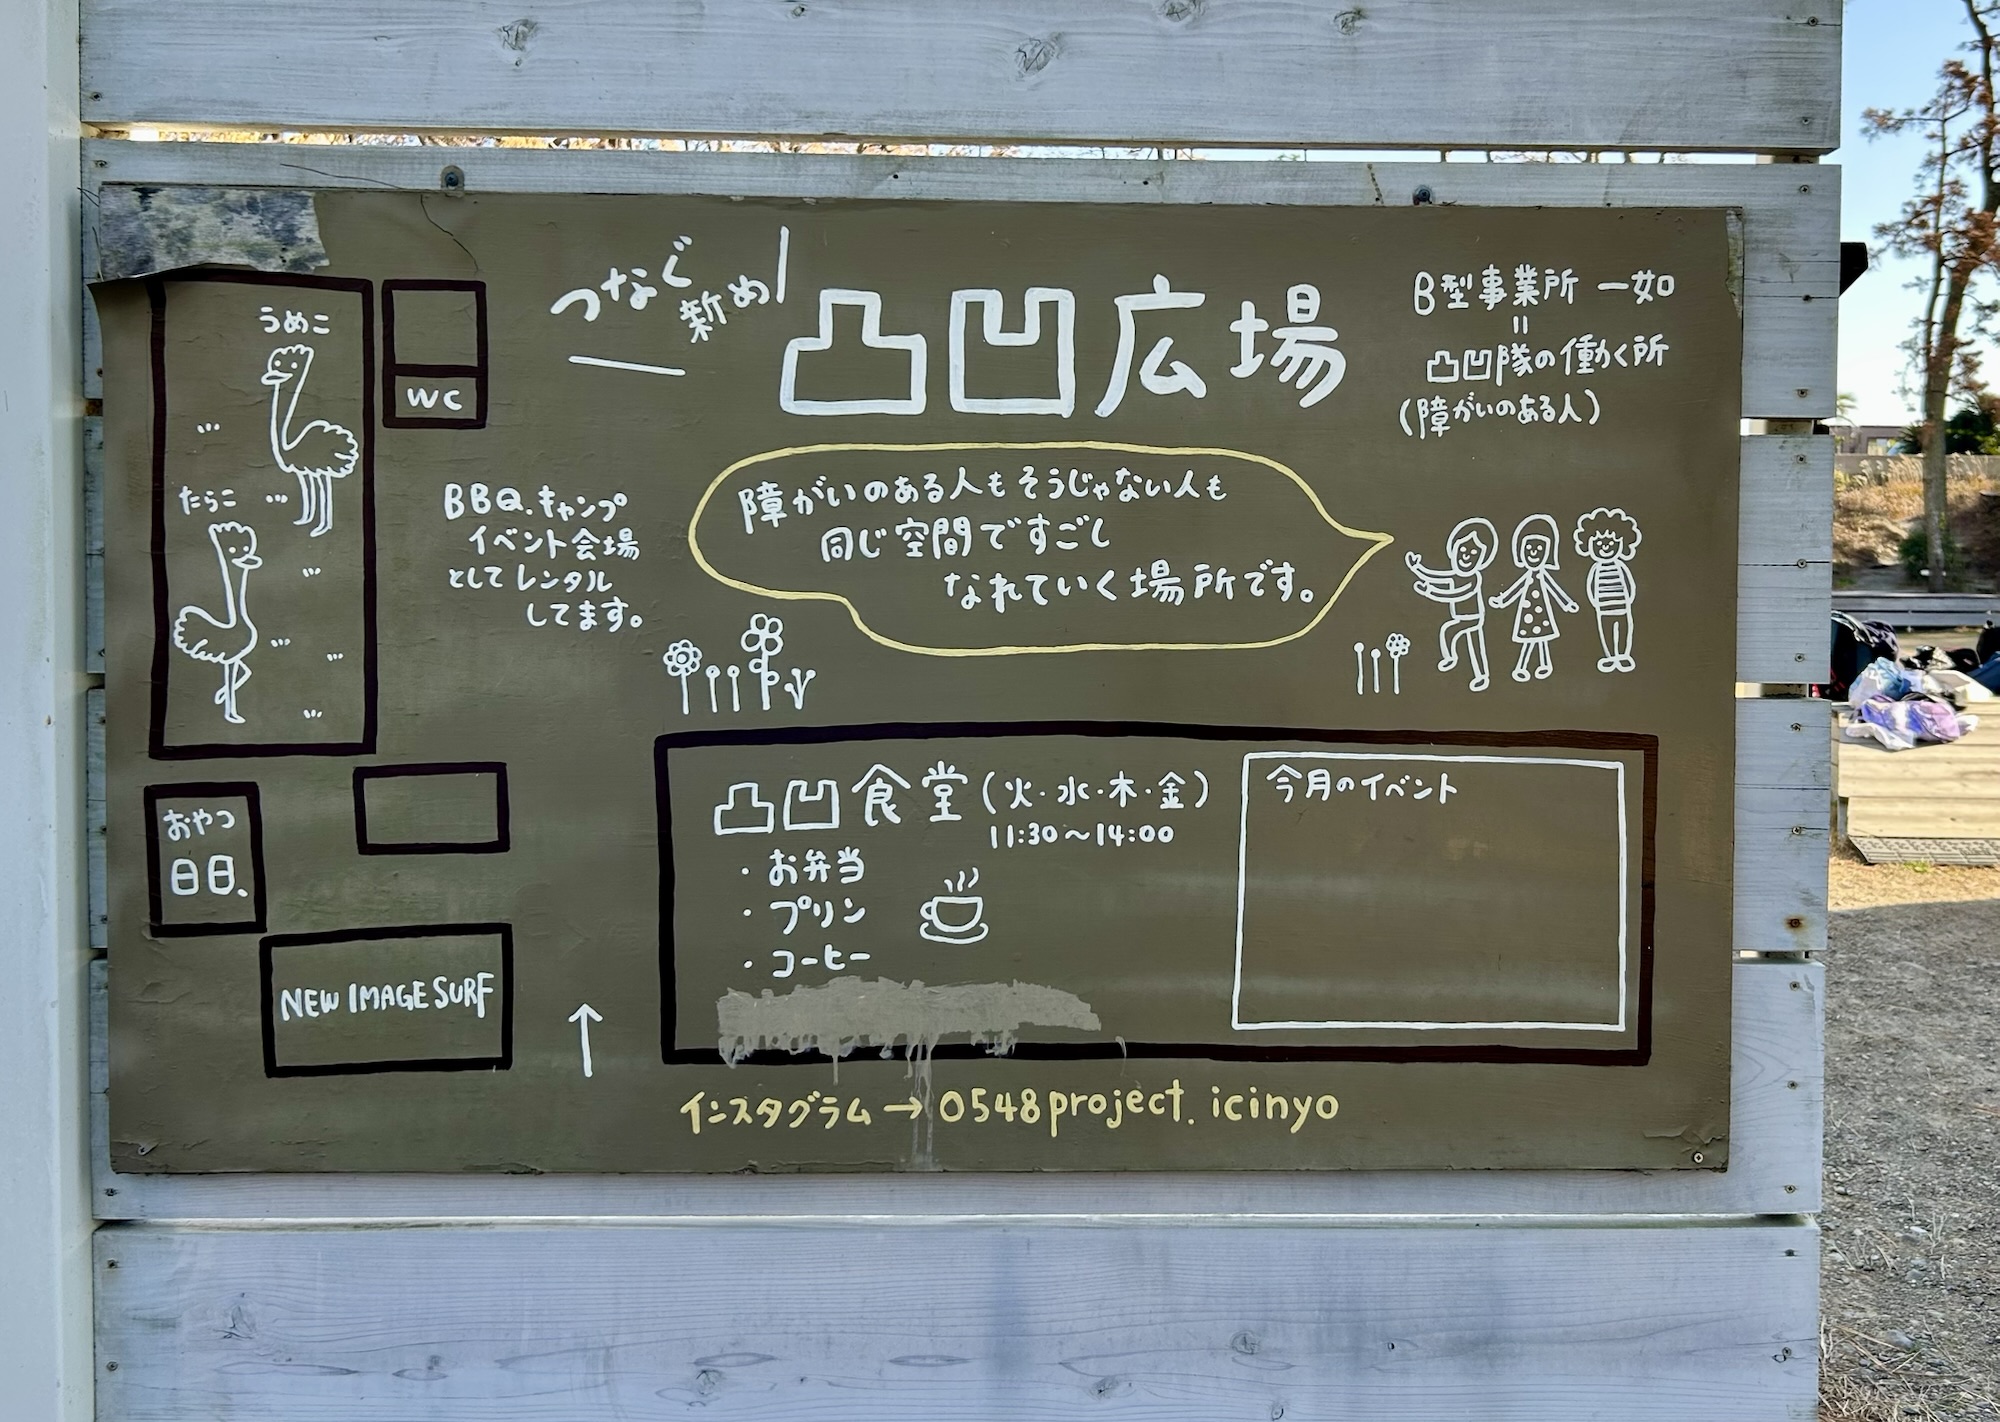 つなぐ
新め
凸凹広場
B型事業所 一如
=
凸凹隊の働く所
(障がいのある人)
うめこ
WC
たらこ
BBQ.キャンプ
イベント会場
としてレンタル
してます。
障がいのある人もそうじゃない人も
同じ空間ですごし
なれていく場所です。
おやつ
日日、
NEW IMAGE SURF
↑
凸凹食堂(火・水・木・金)
11:30〜14:00
・お弁当
・プリン
・コーヒー
今月のイベント
インスタグラム→0548project.icinyo